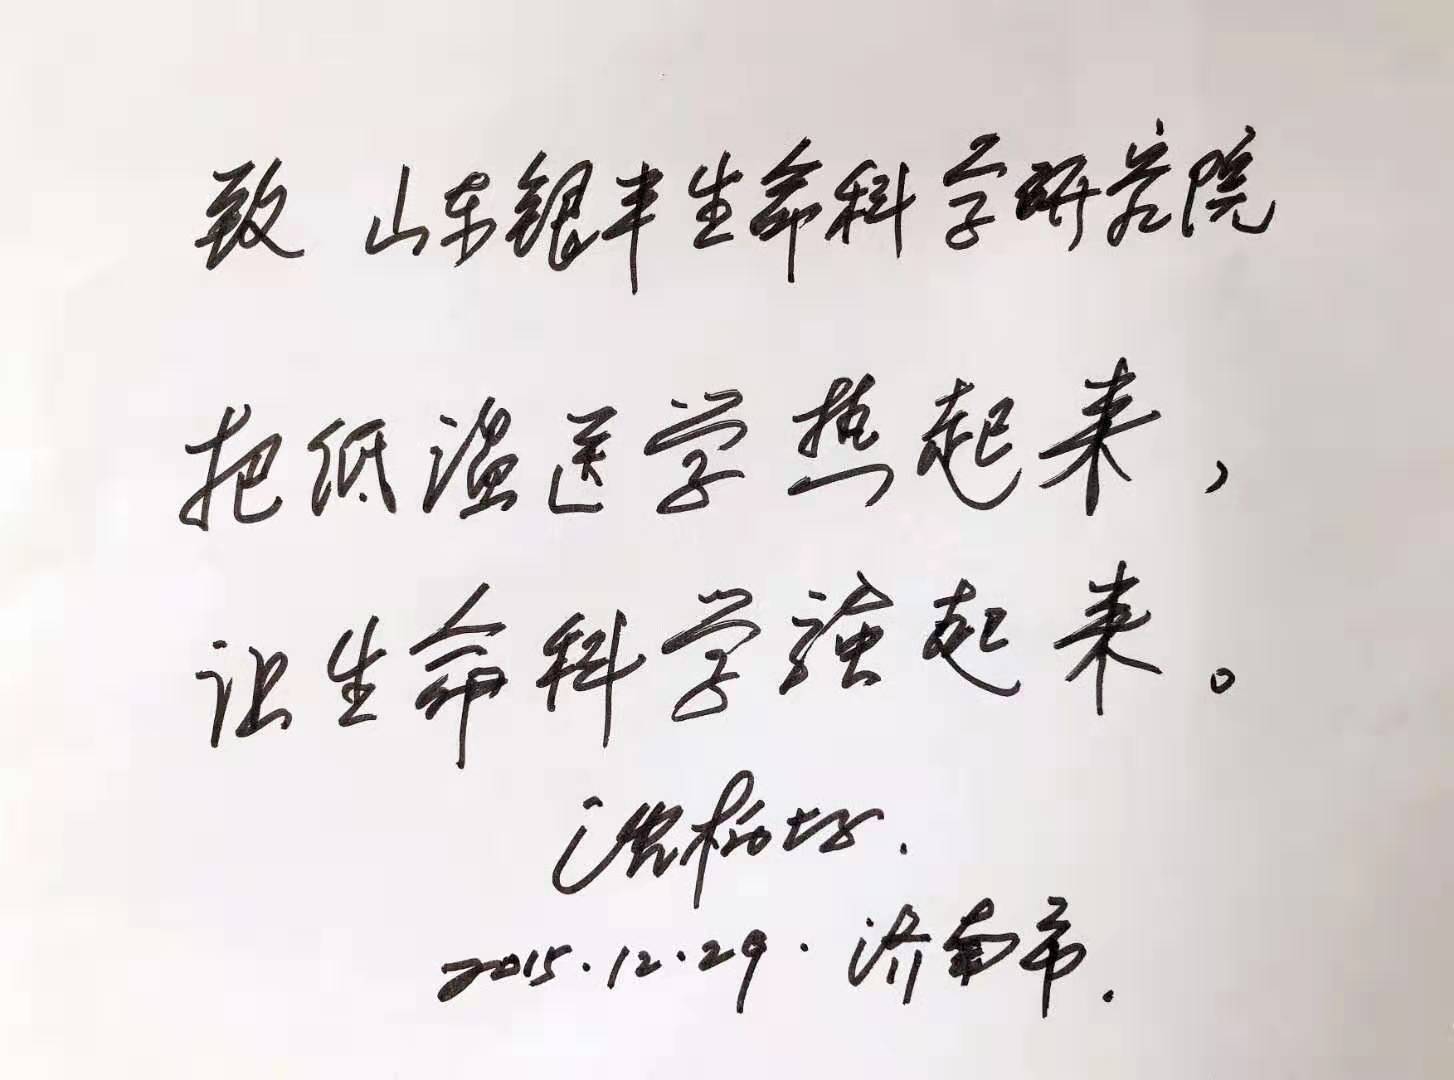 致 山东银丰生命科学研究院
把低温医学热起来，
让生命科学强起来。
2015.12.29.济南市.